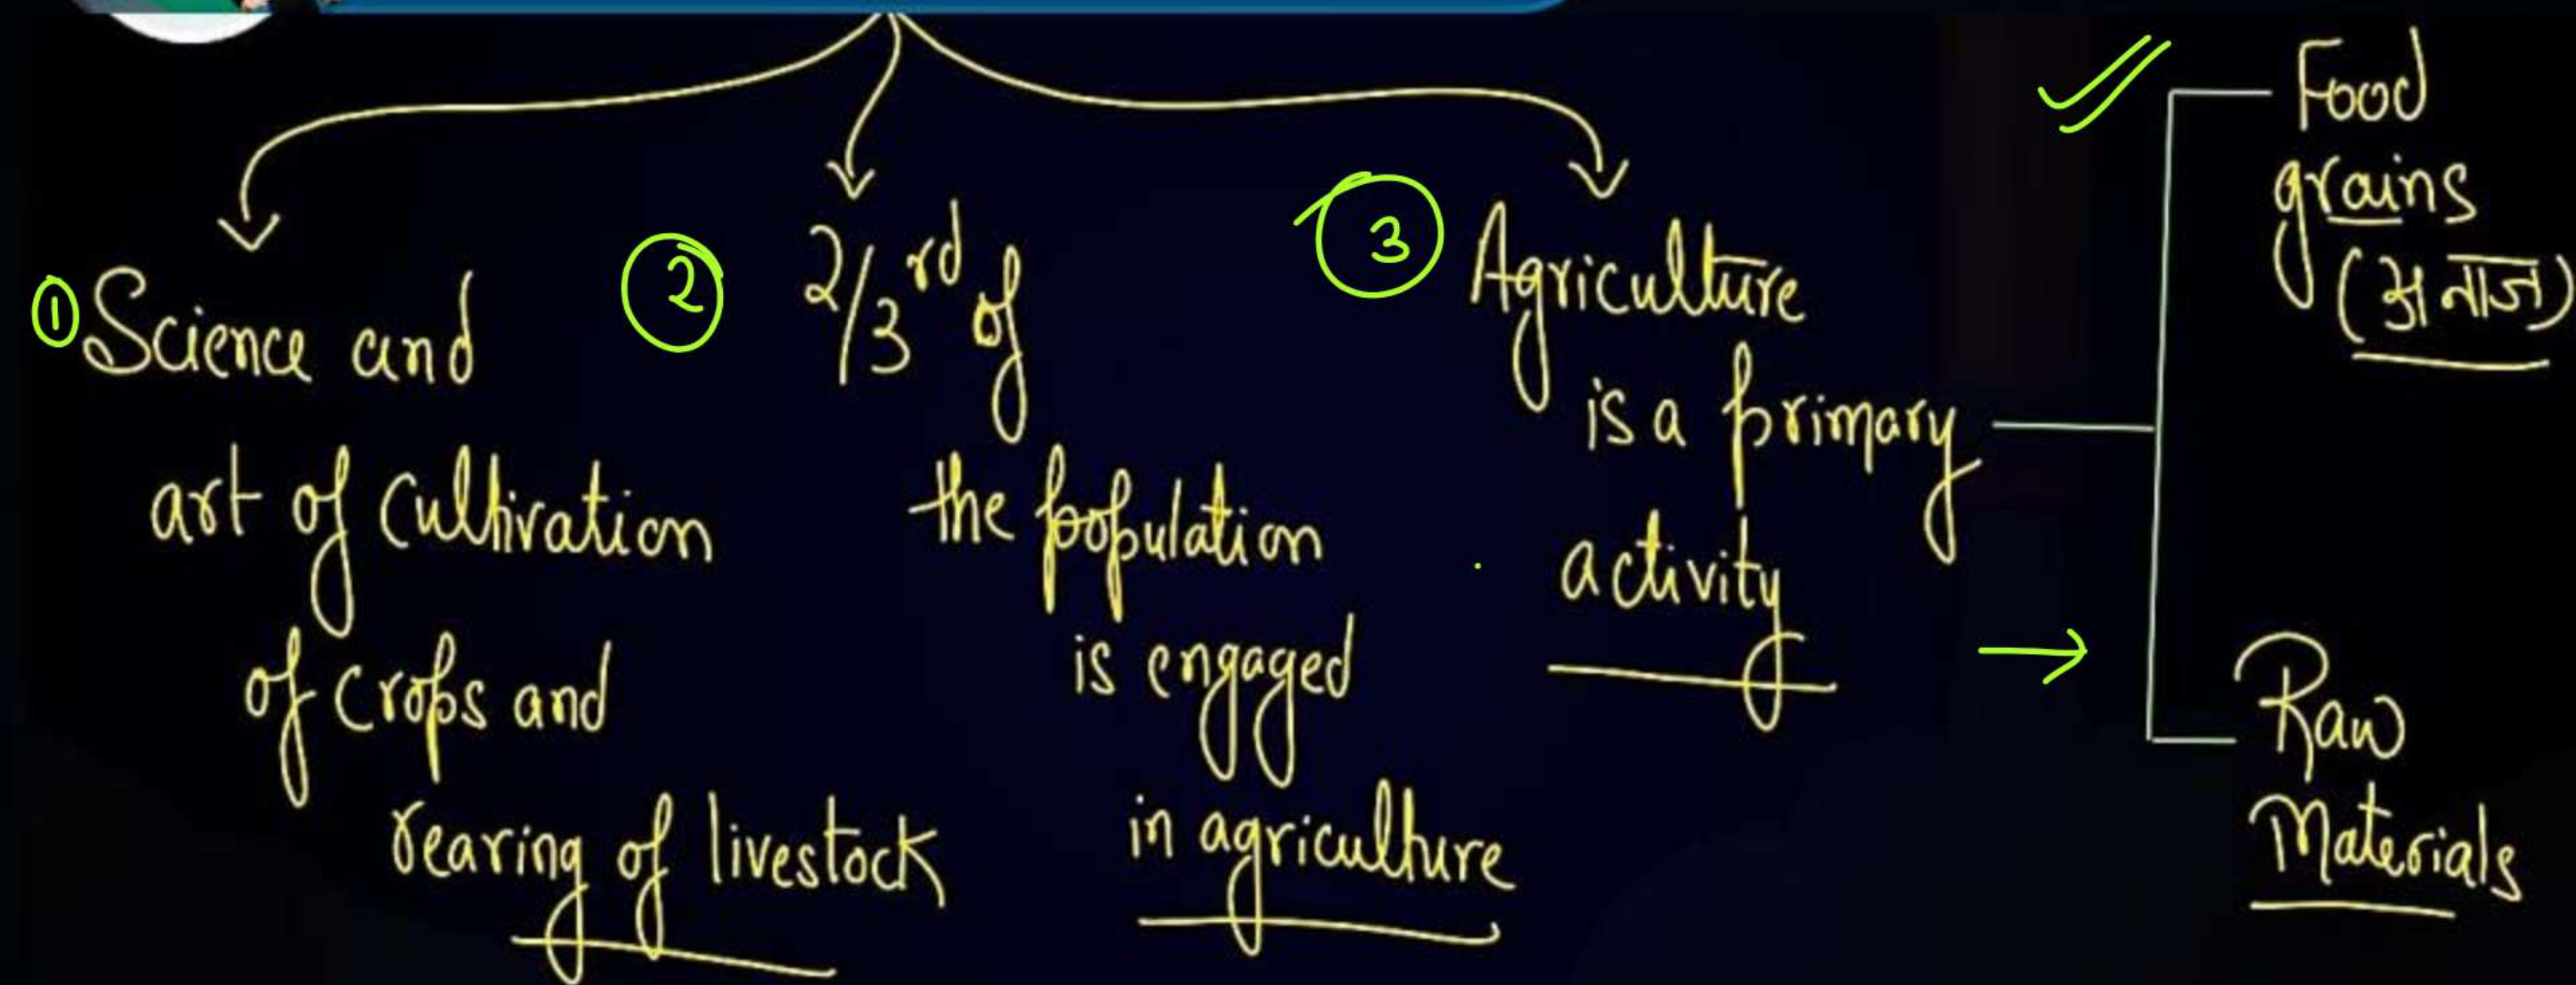 ① Science and
art of cultivation
of crops and
rearing of livestock
② 2/3rd of
the population
is engaged
in agriculture
③ Agriculture
is a primary
activity
Food
grains
(अनाज)
Raw
Materials